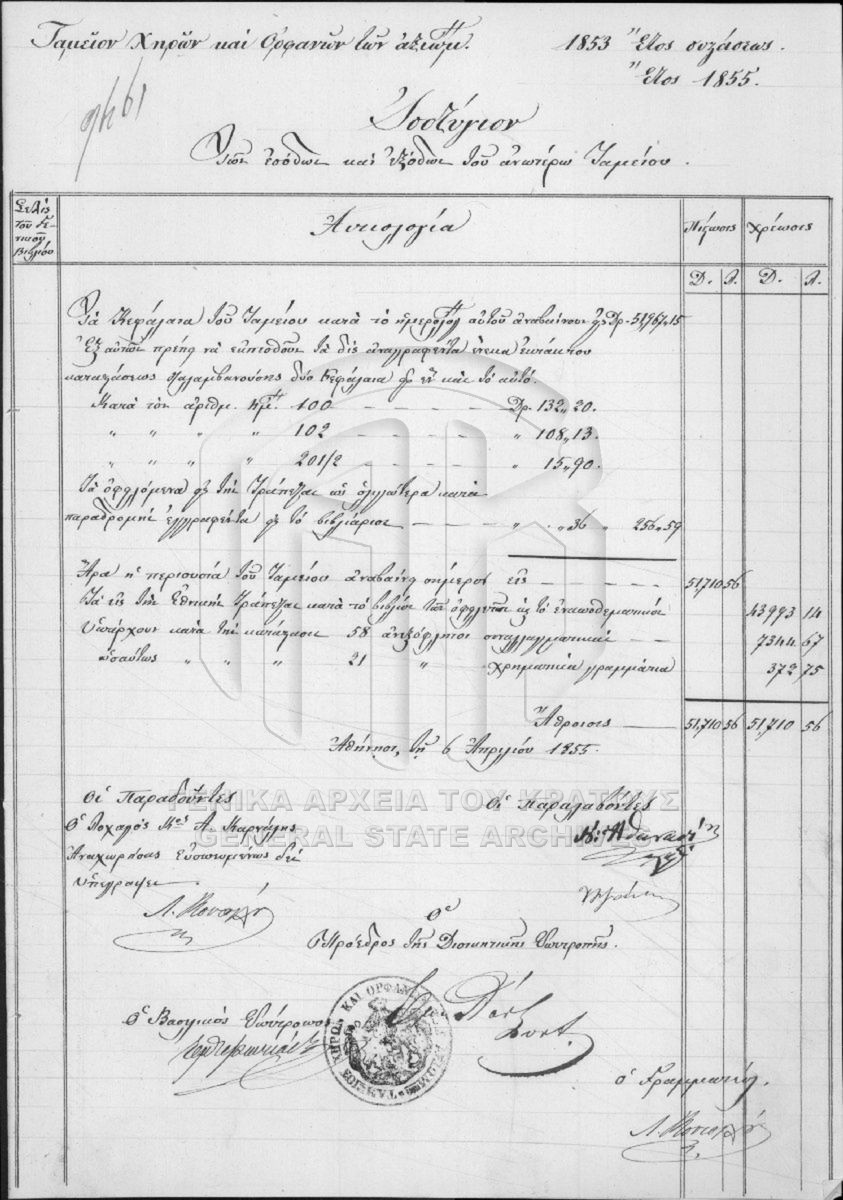 Ταμεῖον Χηρῶν καὶ Ὀρφανῶν τῶν ἀξιωμ. 1853 Ἔτος συστάσεως.
Ἔτος 1855.
Ἰσοζύγιον
Τῶν ἐσόδων καὶ ἐξόδων τοῦ ἀνωτέρω Ταμείου.
Σελὶς τοῦ Γενικοῦ Βιβλίου
Αἰτιολογία
Πίστωσις Χρέωσις
Δ. Λ. Δ. Λ.
Τὰ Κεφάλαια τοῦ Ταμείου κατὰ τὸ ἡμερολόγ αὐτοῦ ἀναβαίνουν εἰς Δρ. 51,967,15
Ἐξ αὐτῶν πρέπει νὰ ἐκπεσθοῦν τὰ δὶς ἀναγραφέντα ἕνεκα
καταστάσεως δύο Κεφάλαια ἓν καὶ τὸ αὐτό.
Κατὰ τὸν ἀριθμ. 100 — Δρ. 132,,20.
" " " " 102 — " 108,,13.
" " " " 201/2 — " 15,,90.
Τὰ ὀφειλόμενα εἰς τὴν Τράπεζαν ὡς ὀλιγώτερα κατὰ
παραδρομὴν ἐγγραφέντα εἰς τὸ βιβλιάριον — " ,,36 " 256,,59
Ἄρα ἡ περιουσία τοῦ Ταμείου ἀναβαίνει σήμερον εἰς — 51,710 56
Τὰ εἰς τὴν Ἐθνικὴν Τράπεζαν κατὰ τὸ βιβλίον 43993 14
Ὑπάρχουν κατὰ τὴν κατάστασιν 58 ἀνεξόφλητοι συναλλαγματικαὶ — 7344 67
ὡσαύτως " " " 21 " χρηματικὰ γραμμάτια 372 75
Ἄθροισις — 51,710 56 51,710 56
Ἀθήνησι, τῇ 6 Ἀπριλίου 1855.
Οἱ Παραδόντες
Οἱ Παραλαβόντες
Ὁ Λοχαγὸς Κος Α. Καρνάλης
Ἀναχωρήσας δὲν
ὑπέγραψε
Ὁ
Πρόεδρος τῆς Διοικητικῆς Ἐπιτροπῆς.
Ὁ Βασιλικὸς Ἐπίτροπος
ΤΑΜΕΙΟΝ ΧΗΡΩΝ ΚΑΙ ΟΡΦΑΝΩΝ
ὁ Γραμματεύς.
ΓΕΝΙΚΑ ΑΡΧΕΙΑ ΤΟΥ ΚΡΑΤΟΥΣ
GENERAL STATE ARCHIVES